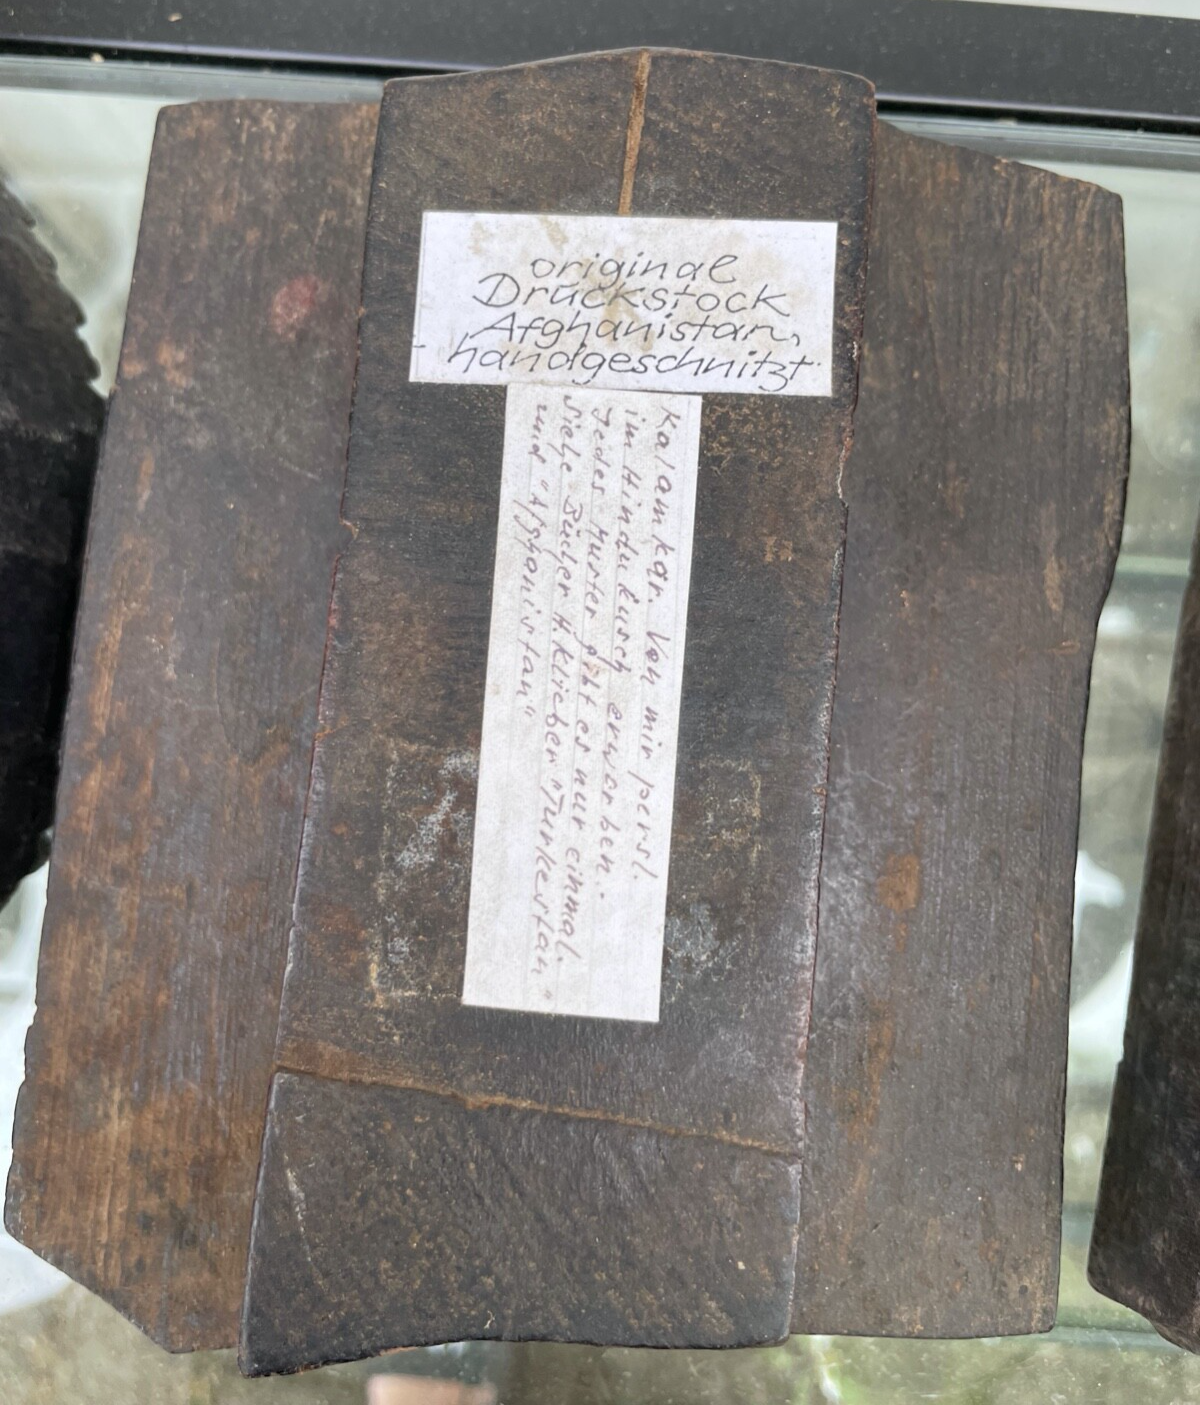 original
Druckstock
Afghanistan,
handgeschnitzt
Kalamkar. Von mir persl.
im Hindukusch erworben.
Jedes Muster gibt es nur einmal.
Siehe Bücher H. Klieber "Turkestan"
und "Afghanistan"